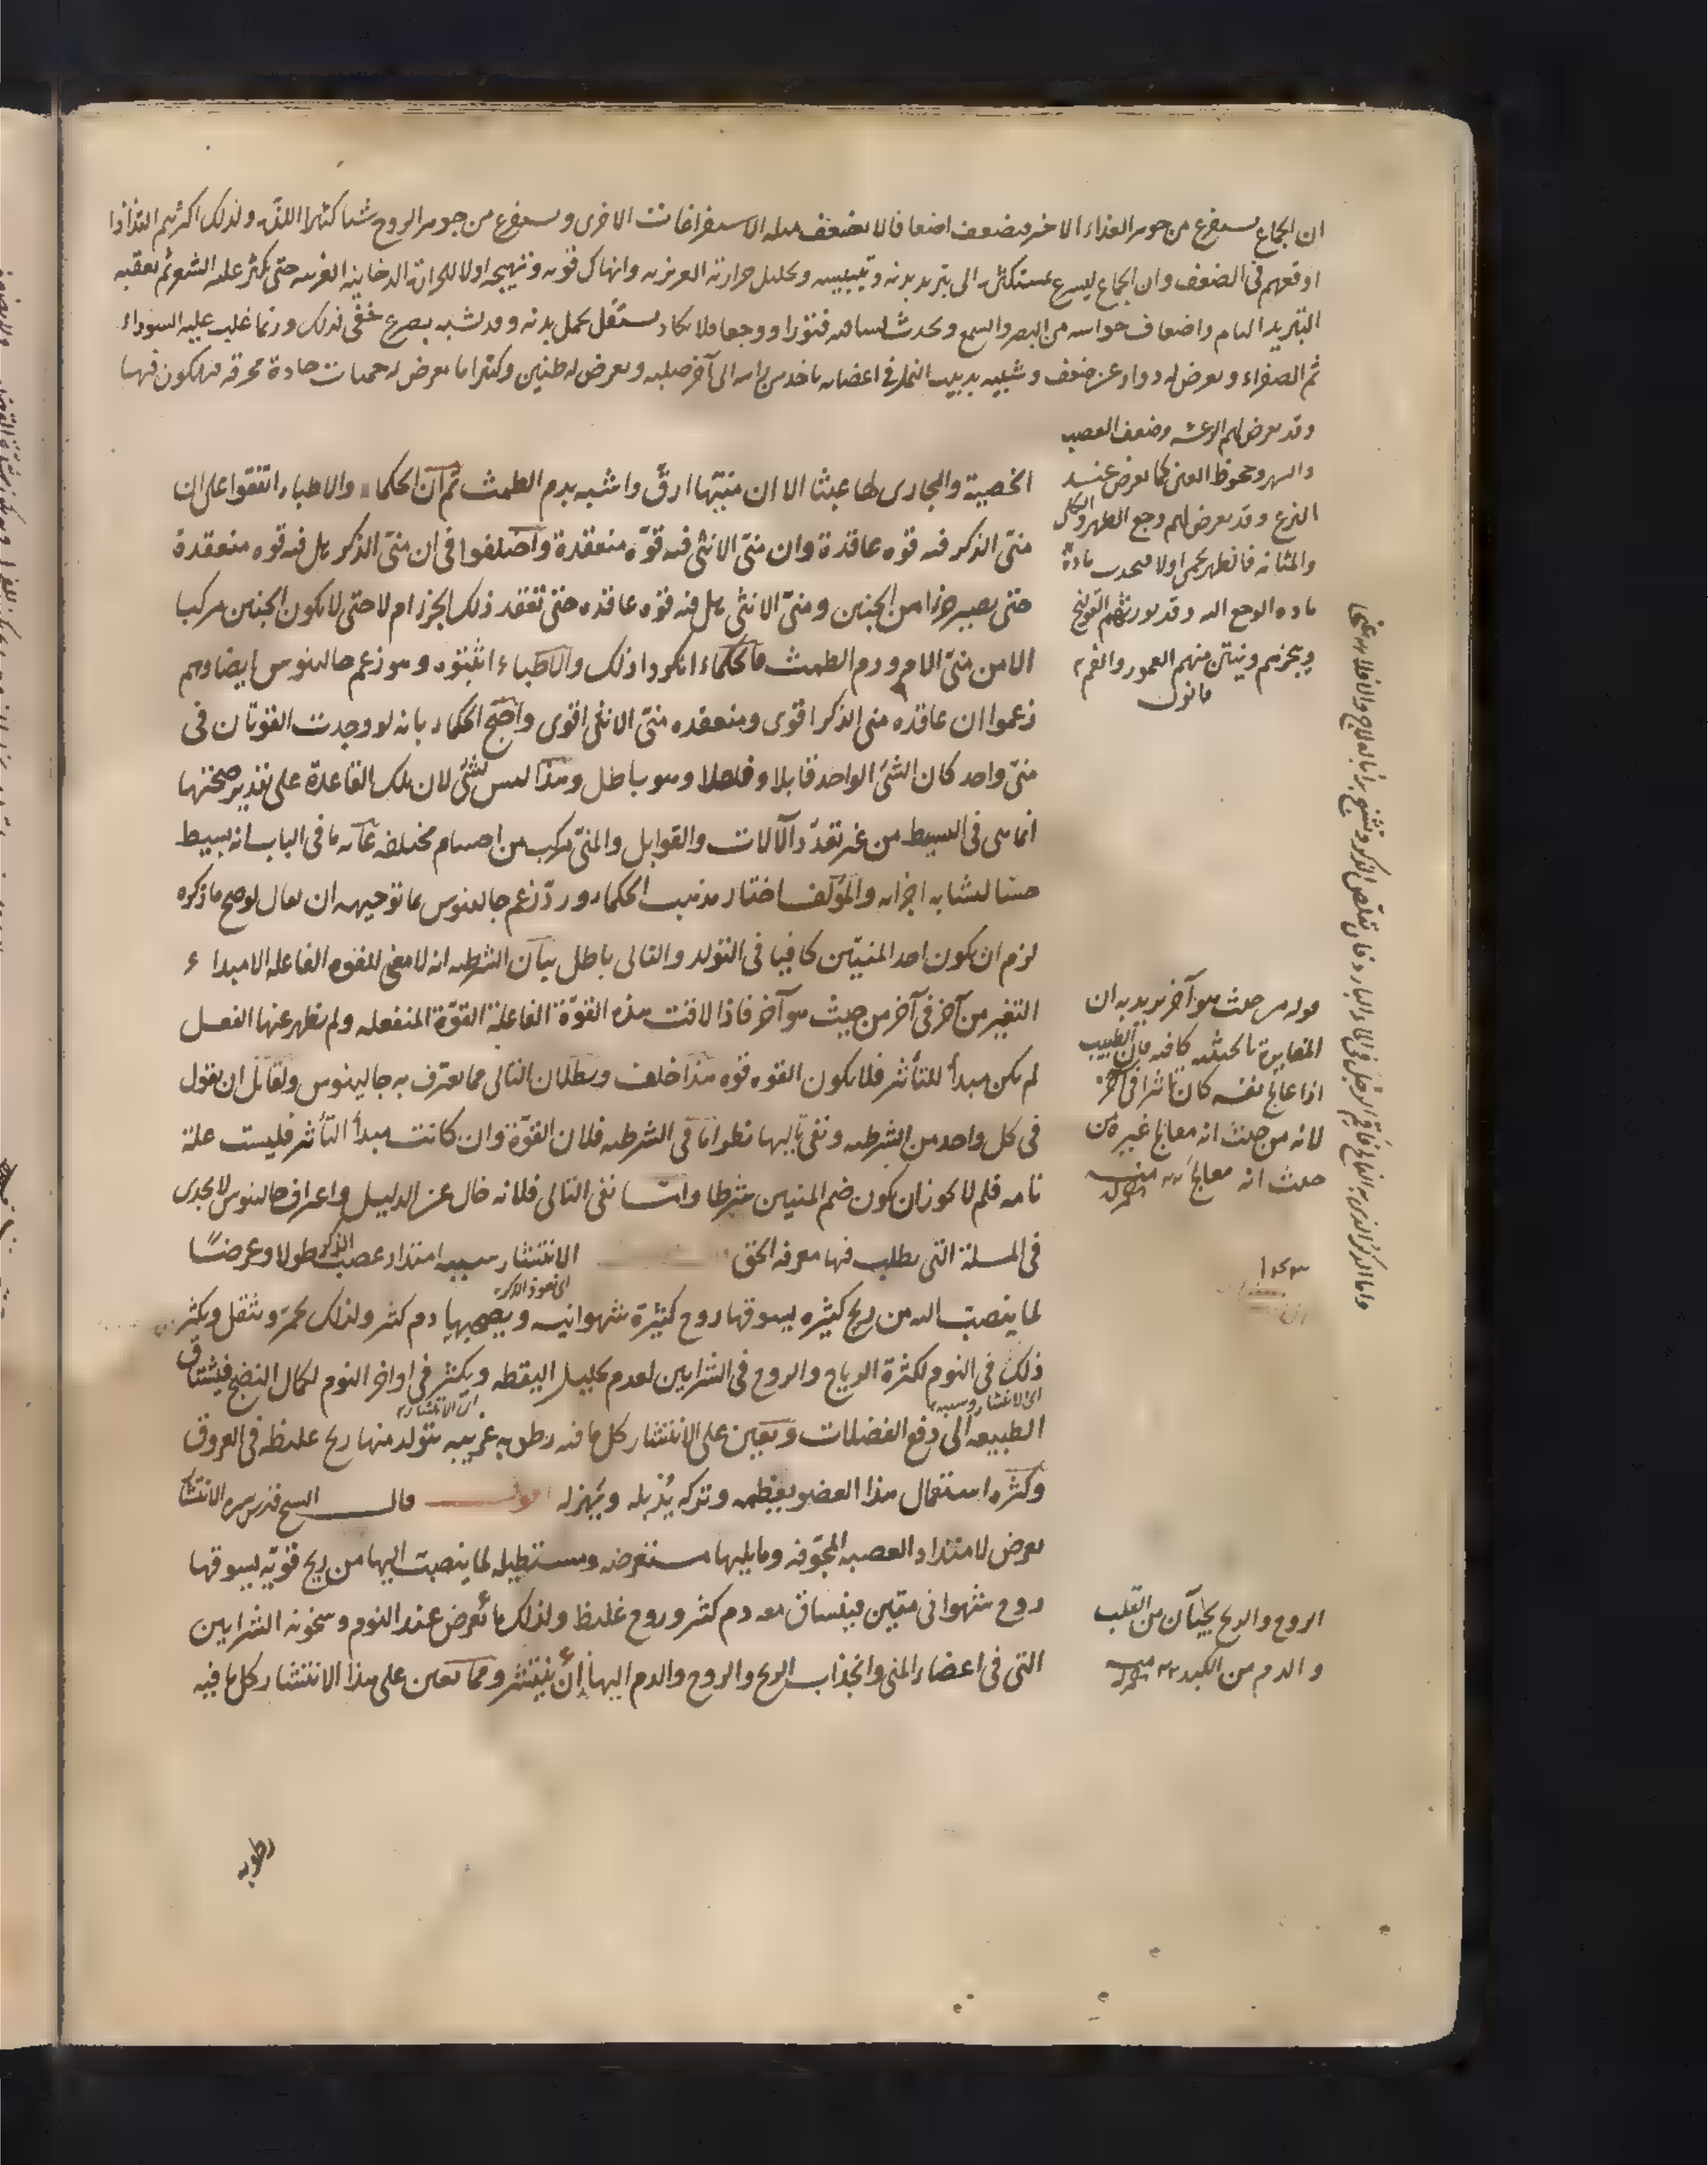 ان الجماع يستفرغ من جوهر الغذاء الاخير فيضعف اضعافا لا يضعف مثله الاستفراغات الاخرى ويستفرغ من جوهر الروح شيا كثيرا للذة ولذلك اكثرهم التذاذا
اوقعهم في الضعف وان الجماع ليسرع بمستكثره الى تبريد بدنه وتيبيسه وتحليل حرارته الغريزية وانهاك قوته وتهيجه اولا للحرارة الدخانية الغريبة حتى يكثر عليه الشعر ثم يعقبه
التبريد التام واضعاف حواسه من البصر والسمع ويحدث لساقيه فتورا ووجعا فلا يكاد يستقل بحمل بدنه وقد يشبه بصرع خفي لذلك وربما غلب عليه السوداء
ثم الصفراء ويعرض له دوار عن ضعف وشبيه بدبيب النمل في اعضائه ياخد من راسه الى آخر صلبه ويعرض له طنين وكثيرا ما يعرض له حميات حادة محرقة فيهلكون فيها
وقد يعرض لهم الرعشة وضعف العصب
والسهر وجحوظ العين كما يعرض عند
النزع وقد يعرض لهم وجع الظهر والكلى
والمثانة فالظهر يحمى اولا فيجذب مادة
مادة الوجع اليه وقد يورثهم القولنج
ويبخرهم وينتن منهم العمور والفم
قانون
الخصية والمجارى لها عبثا الا ان منيّها ارقّ واشبه بدم الطمث ثم ان الحكماء والاطباء اتفقوا على ان
منىّ الذكر فيه قوه عاقدة وان منىّ الانثى فيه قوّه منعقدة واختلفوا فى ان منىّ الذكر هل فيه قوه منعقدة
حتى يصير جزا من الجنين ومنىّ الانثى هل فيه قوه عاقده حتى تعقد ذلك الجزء ام لا حتى لا يكون الجنين مركب
الا من منىّ الام ودم الطمث فالحكماء انكروا ذلك والاطباء اثبتوه وهو زعم جالينوس ايضا وهم
زعموا ان عاقده منى الذكر اقوى ومنعقده منىّ الانثى اقوى واحتج الحكماء بانه لو وجدت القوتان فى
منىّ واحد كان الشئ الواحد قابلا وفاعلا وهو باطل وهذا ليس بشئ لان تلك القاعدة على تقدير صحتها
انما هى فى البسيط من غير تعدّد الآلات والقوابل والمنىّ مركب من اجسام مختلفه غاية ما فى الباب انه بسيط
حسّا لتشابه اجزائه والمؤلف اختار مذهب الحكماء وردّ زعم جالينوس بما توجيهه ان يقال لو صح ما ذكره
لزم ان يكون احد المنيّين كافيا فى التولد والتالى باطل بيان الشرطيه انه لا معنى للقوه الفاعله الا مبداء
التغير من آخر فى آخر من حيث هو آخر فاذا لاقت هذه القوّة الفاعلة القوّة المنفعله ولم يظهر عنها الفعل
لم يكن مبدأ للتأثر فلا يكون القوه قوه هذا خلف وبطلان التالى مما يعترف به جالينوس ولقائل ان يقول
فى كل واحد من الشرطيه ونفى تاليها نظر اما فى الشرطيه فلان القوّة وان كانت مبدأ التأثر فليست علة
تامه فلم لا يجوز ان يكون ضم المنيين شرطا وامّا نفى التالى فلانه خال عن الدليل واعتراف جالينوس لا يجدى
فى المسلة التى يطلب فيها معرفه الحق الانتشار سببه امتداد عصب الذكر طولا وعرضًا
لما ينصب اليه من ريح كثيره يسوقها روح كثيرة شهوانيه ويصحبها دم كثير ولذلك يحمرّ ويثقل ويكثر
ذلك فى النوم لكثرة الرياح والروح فى الشرايين لعدم تحليل اليقظه ويكثر فى اواخر النوم لكمال النضج فيشتاق
الطبيعه الى دفع الفضلات ويعين على الانتشار كل ما فيه رطوبه غريبه يتولد منها ريح غليظه فى العروق
وكثره استعمال هذا العضو يعظمه وتركه يُذبله ويُهزله اقول قال الشيخ قدس سره الانتشار
يعرض لامتداد العصبه المجوّفه وما يليها مستعرضه ومستطيله لما ينصب اليها من ريح قويّه يسوقها
روح شهوانى متين فينساق معه دم كثير وروح غليظ ولذلك ما يُعرض عند النوم وسخونه الشرايين
التى فى اعضاء المنى وانجذاب الريح والروح والدم اليها أنْ ينتشر ومما يعين على هذا الانتشار كل ما فيه
قوله من حيث هو آخر يريد به ان
المغايرة بالحيثيه كافيه فان الطبيب
اذا عالج نفسه كان تاثيرا فى آخر
لانه من حيث انه معالج غيره من
حيث انه معالج
الروح والريح يجيآن من القلب
والدم من الكبد
رطوبه